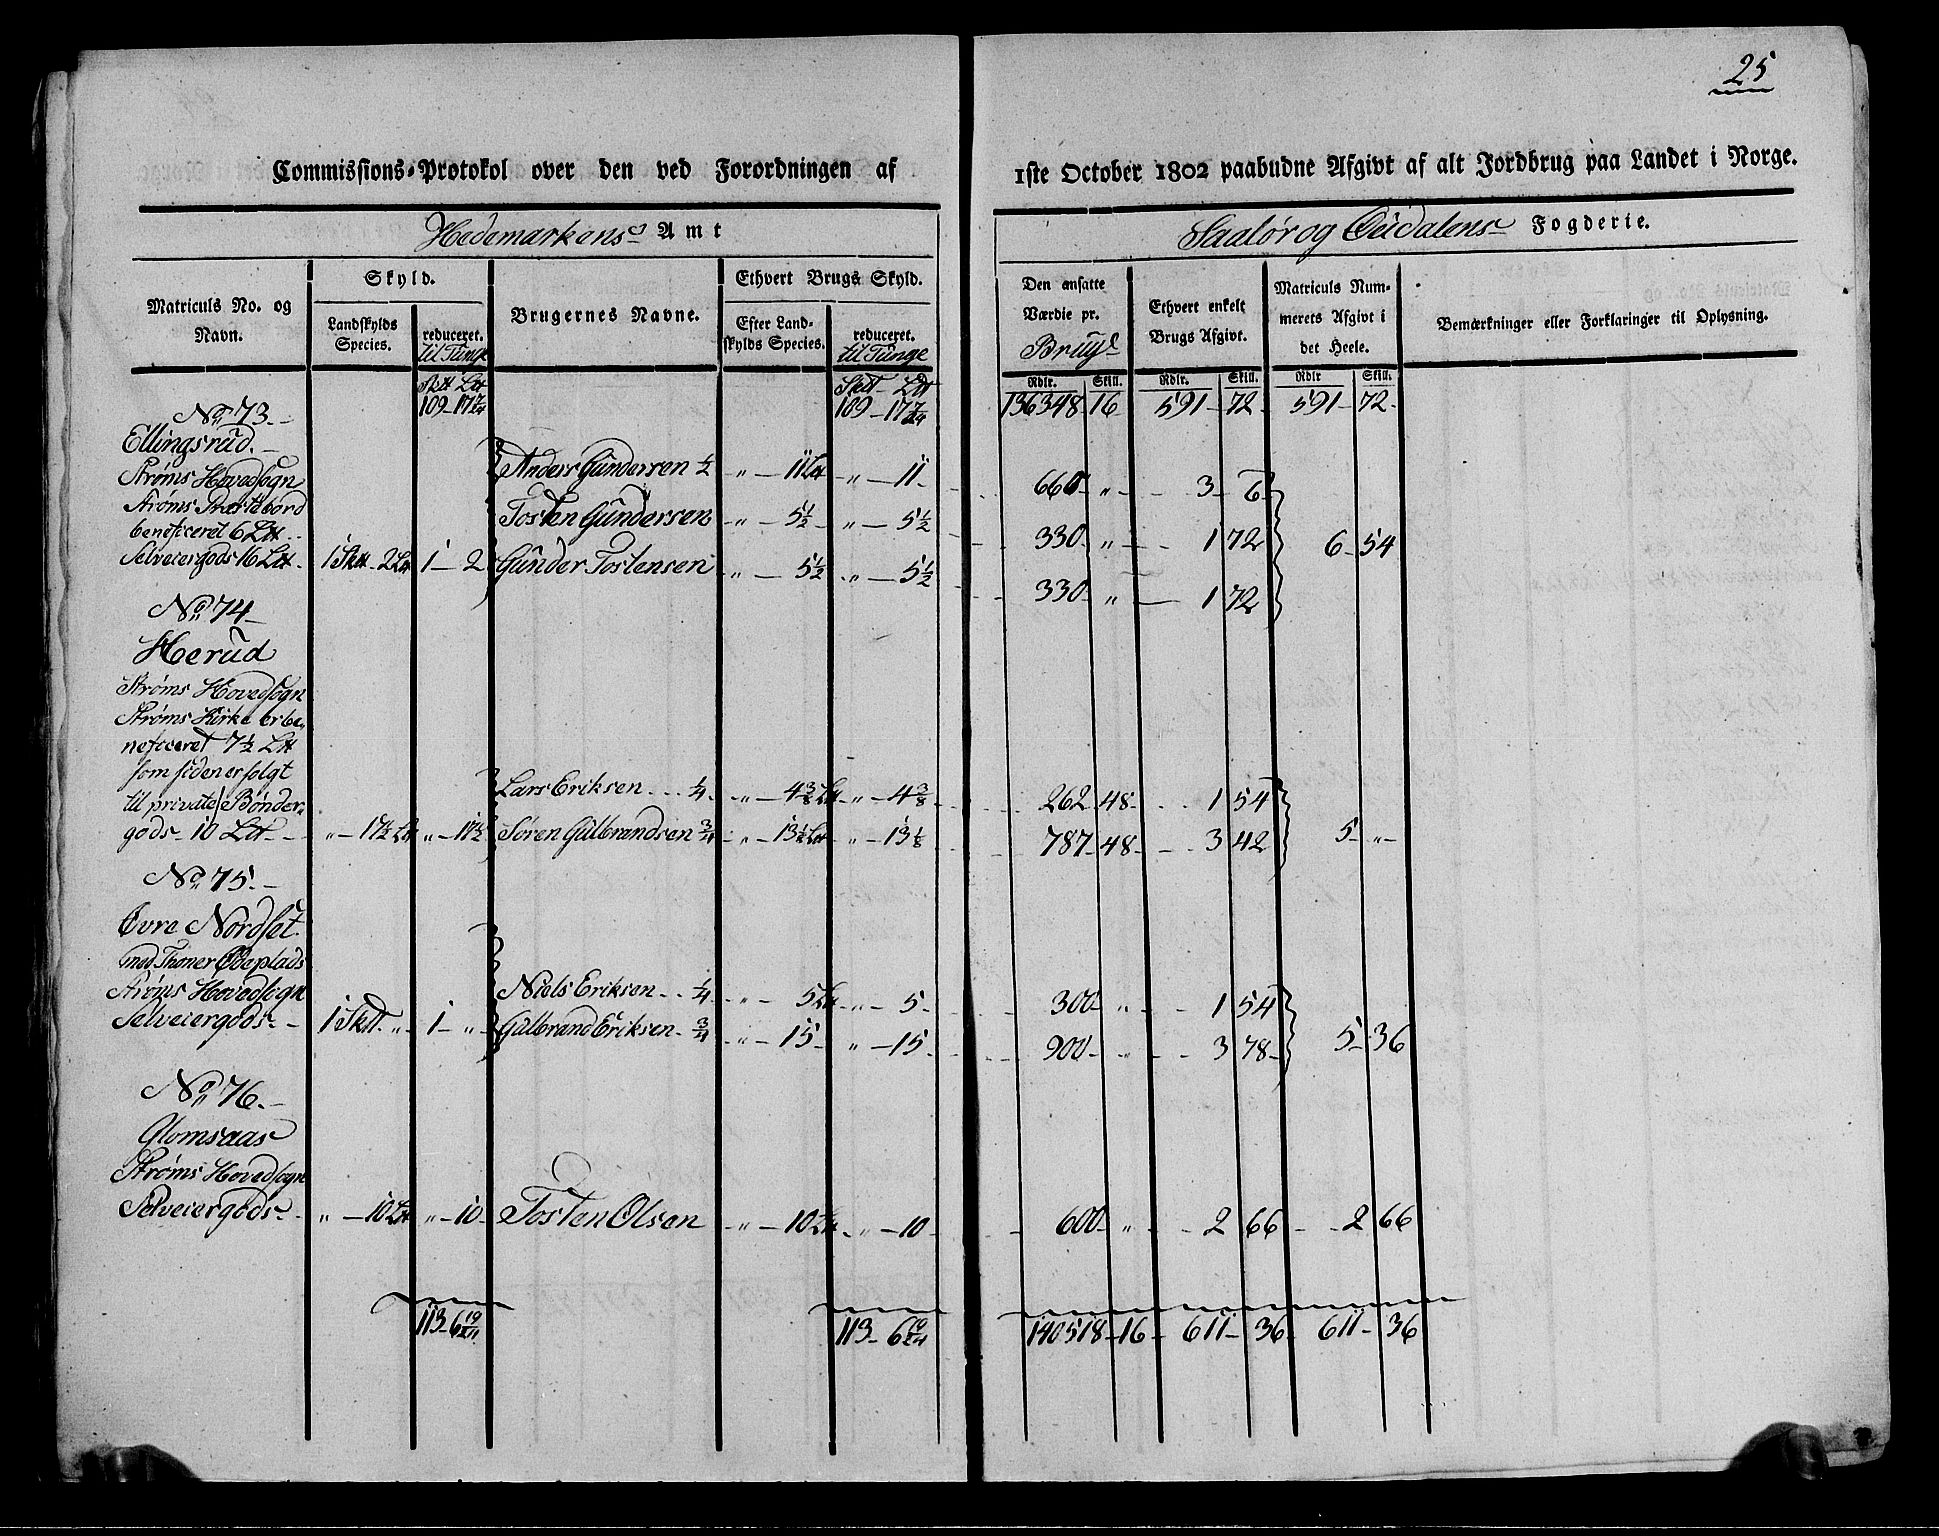 25
Commissions-Protokol over den ved Forordningen af 1ste October 1802 paabudne Afgivt af alt Jordbrug paa Landet i Norge.
Hedemarkens Amt
Fogderie.
Matriculs No. og Navn.
Skyld.
Landskylds Species.
reduceret. til Tunge
Brugernes Navne.
Ethvert Brugs Skyld.
Efter Landskylds Species.
reduceret. til Tunge
Den ansatte Værdie pr. Brug
Ethvert enkelt Brugs Afgivt.
Matriculs Nummerets Afgivt i det Heele.
Bemærkninger eller Forklaringer til Oplysning.
Rdlr. Skill. Rdlr. Skill. Rdlr Skill.
109 - 17 7/24 109 - 17 7/24 136348 16 591 - 72 - 591 - 72 -
No 73. -
Ellingsrud. -
Strøms Hovedsogn Anders Gundersen 1/2 " - 11 Lt " - 11 - 660 - " - 3 - 6 -
Strøms Præstebord Tosten Gundersen " - 5 1/2 " - 5 1/2 330 - " - 1 72
beneficeret 6 Lt.
Selveiergods 16 Lt. 1 Skt - 2 Lt 1 - 2 Gunder Tostensen " - 5 1/2 " - 5 1/2 330 - " - 1 72 6 - 54
No 74 -
Herud
Strøms Hovedsogn
Strøms Kirke er be-
neficeret 7 1/2 Lt
som siden er solgt
til private / Bønder- Lars Eriksen 1/4 " - 4 3/8 Lt " - 4 3/8 262 48 - 1 54
gods - 10 Lt - " - 17 1/2 Lt " - 17 1/2 Søren Gulbrandsen 3/4 " - 13 1/8 Lt " - 13 1/8 787 - 48 - 3 42 5 - "
No 75. -
Øvre Nordset
med Thoner Ødeplads
Strøms Hovedsogn Niels Eriksen 1/4 " - 5 Lt " - 5 - 300 - " - 1 54
Selveiergods - 1 Skt. " 1 - " Gulbrand Eriksen - 3/4 " - 15 - " - 15 - 900 - " - 3 78 - 5 - 36
No 76. -
Glomsaas
Strøms Hovedsogn
Selveiergods - " - 10 Lt " - 10 - Tosten Olsen " - 10 Lt " - 10 - 600 - " - 2 66 - 2 66
113 - 6 19/24 113 - 6 19/24 140518 - 16 - 611 - 36 - 611 - 36